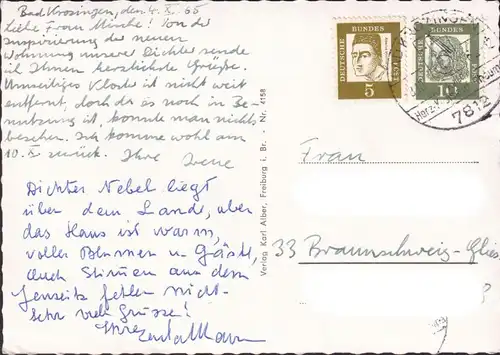 Bad Krozingen, den 4. X. 65
Liebe Frau Mirche! Von der
Inspizierung der neuen
Wohnung unserer Dichter sende
ich Ihnen herzlichste Grüße.
Unweiliges Kloster ist nicht weit
entfernt, doch da es noch in Be-
nutzung ist, konnte man nichts
besehen. Ich komme wohl am
10. X zurück. Ihre Irene
Dichter Nebel liegt
über dem Land, aber
das Haus ist warm,
voller Blumen u Gäste,
auch Stimmen aus dem
Jenseits fehlen nicht-
sehr viele Grüsse!
Ihre
Verlag Karl Alber, Freiburg i. Br. - Nr. 4158
DEUTSCHE BUNDESPOST
5
DEUTSCHE BUNDESPOST
10
7812
Herz-
Frau
33 Braunschweig-Glies